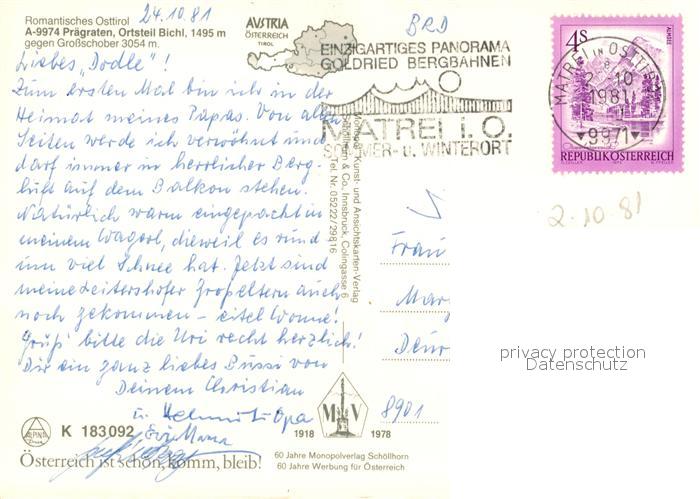 Romantisches Osttirol
24.10.81
A-9974 Prägraten, Ortsteil Bichl, 1495 m
gegen Großschober 3054 m.
AUSTRIA
ÖSTERREICH
TIROL
BRD
EINZIGARTIGES PANORAMA
GOLDRIED BERGBAHNEN
MATREI i. O.
SOMMER- u. WINTERORT
MATREI IN OSTTIROL
1981
9971
4 S
ALMSEE
REPUBLIK ÖSTERREICH
2.10.81
Liebes "Dodle"!
Zum ersten Mal bin ich in der
Heimat meines Papas. Von allen
Seiten werde ich verwöhnt und
darf immer in herrlicher Berg-
luft auf dem Balkon stehen.
Natürlich warm eingepackt in
meinem Wagerl, dieweil es rund
um viel Schnee hat. Jetzt sind
meine Leitershofer Großeltern auch
noch gekommen - eitel Wonne!
Grüß' bitte die Uri recht herzlich!
Dir ein ganz liebes Bussi von
Deinem Christian
u. Helmut u. Opa
Monopol Kunst- und Ansichtskarten-Verlag
Schöllhorn & Co., Innsbruck, Colingasse 6
Tel. Nr. 05222/29816
Frau
8901
M V
1918 1978
ALPINA
K 183092
Österreich ist schön, komm, bleib!
60 Jahre Monopolverlag Schöllhorn
60 Jahre Werbung für Österreich
privacy protection
Datenschutz